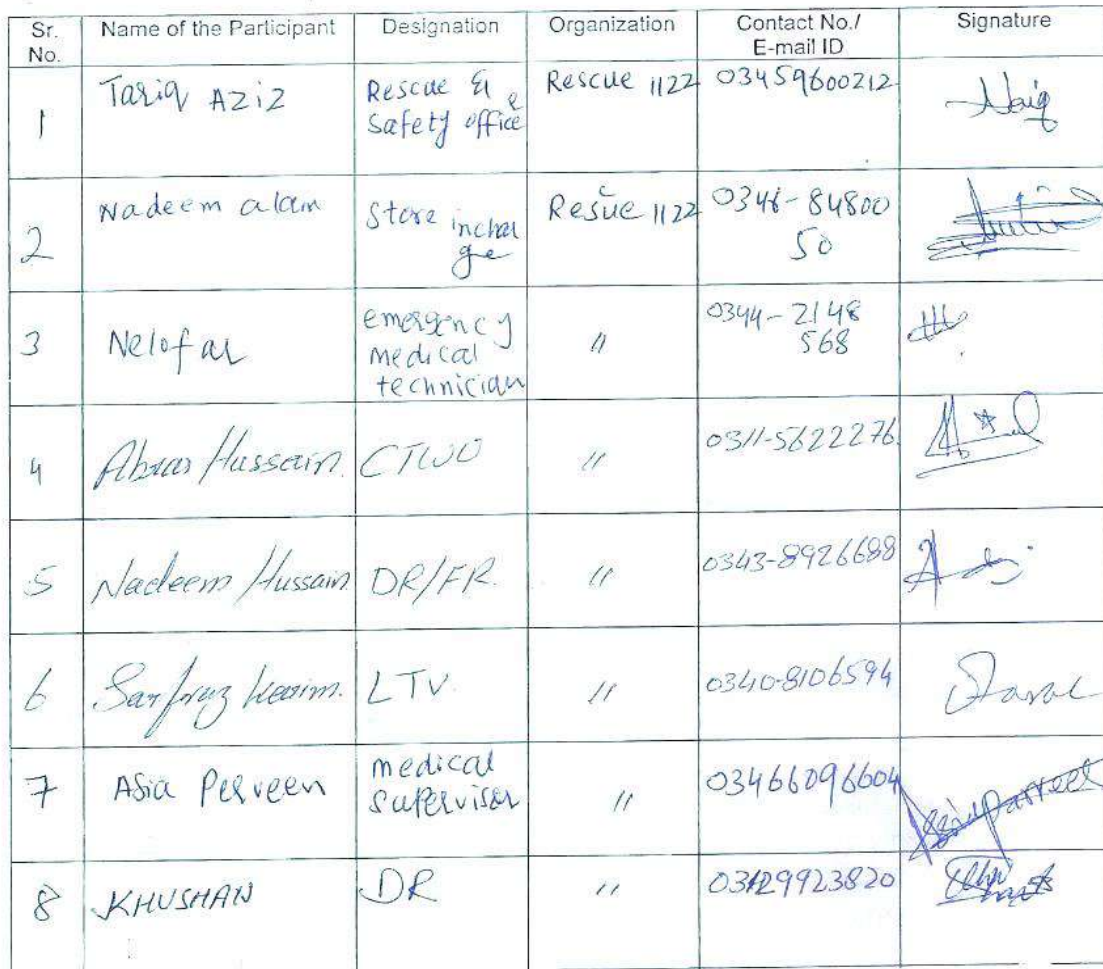 Sr. No. Name of the Participant Designation Organization Contact No./ E-mail ID Signature
1 Tariq Aziz Rescue & Safety officer Rescue 1122 03459600212
2 Nadeem alam Store incharge Rescue 1122 0346-8480050
3 Nelofar emergency medical technician " 0344-2148568
4 Abrar Hussain. CTWO " 0311-5622276
5 Nadeem Hussain DR/FR. " 0343-8926688
6 Sarfraz kearim. LTV. " 0340-8106594
7 Asia Perveen medical supervisor " 03466096604
8 KHUSHAN DR " 03129923820